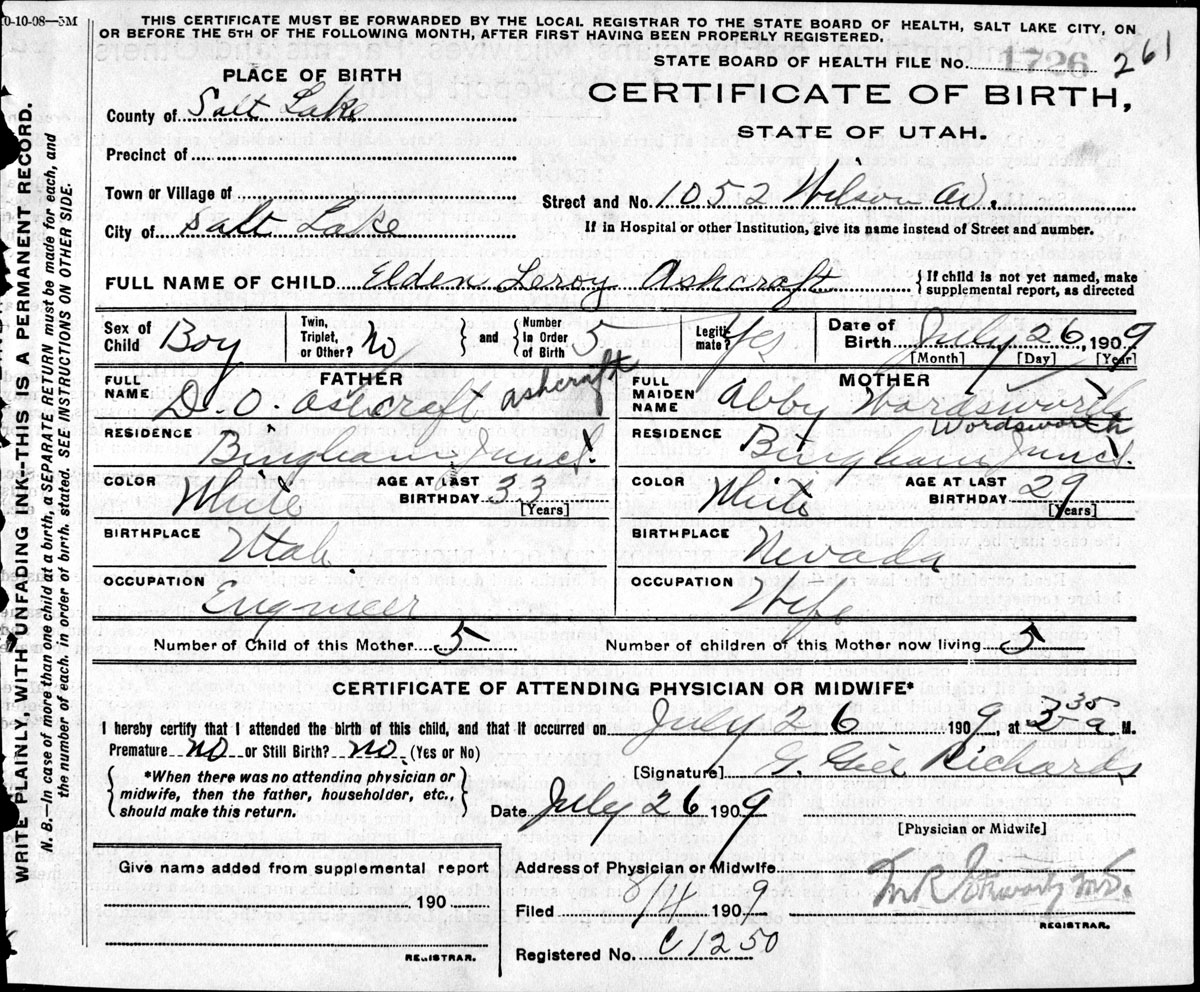 10-10-08—5M
THIS CERTIFICATE MUST BE FORWARDED BY THE LOCAL REGISTRAR TO THE STATE BOARD OF HEALTH, SALT LAKE CITY, ON
OR BEFORE THE 5TH OF THE FOLLOWING MONTH, AFTER FIRST HAVING BEEN PROPERLY REGISTERED.
STATE BOARD OF HEALTH FILE No. 1726 261
PLACE OF BIRTH
CERTIFICATE OF BIRTH,
STATE OF UTAH.
County of Salt Lake
Precinct of
Town or Village of
Street and No. 1052 Wilson Av.
City of Salt Lake
If in Hospital or other Institution, give its name instead of Street and number.
FULL NAME OF CHILD Elden Leroy Ashcraft { If child is not yet named, make supplemental report, as directed
Sex of Child Boy Twin, Triplet, or Other? No } and { Number In Order of Birth 5 Legiti- mate? Yes Date of Birth July 26, 1909
[Month] [Day] [Year]
FATHER
FULL NAME D. O. Ashcraft Ashcraft
MOTHER
FULL MAIDEN NAME Abby Wordsworth
Wordsworth
RESIDENCE Bingham Junct.
RESIDENCE Bingham Junct.
COLOR White AGE AT LAST BIRTHDAY 33 [Years]
COLOR White AGE AT LAST BIRTHDAY 29 [Years]
BIRTHPLACE Utah
BIRTHPLACE Nevada
OCCUPATION Engineer
OCCUPATION Wife
Number of Child of this Mother 5 Number of children of this Mother now living 5
CERTIFICATE OF ATTENDING PHYSICIAN OR MIDWIFE*
I hereby certify that I attended the birth of this child, and that it occurred on July 26 1909, at 335 a M.
Premature no or Still Birth? no. (Yes or No)
{ *When there was no attending physician or midwife, then the father, householder, etc., should make this return. }
[Signature] G. Gill Richards
Date July 26 1909
[Physician or Midwife]
Give name added from supplemental report
190
REGISTRAR.
Address of Physician or Midwife
Filed 8/4 1909
REGISTRAR.
Registered No. C 1250
WRITE PLAINLY, WITH UNFADING INK--THIS IS A PERMANENT RECORD.
N. B.—In case of more than one child at a birth, a SEPARATE RETURN must be made for each, and
the number of each, in order of birth, stated. SEE INSTRUCTIONS ON OTHER SIDE.